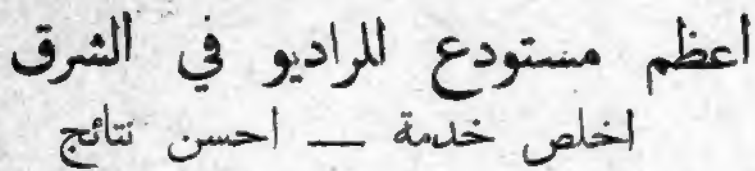 اعظم مستودع للراديو في الشرق
اخلص خدمة — احسن نتائج